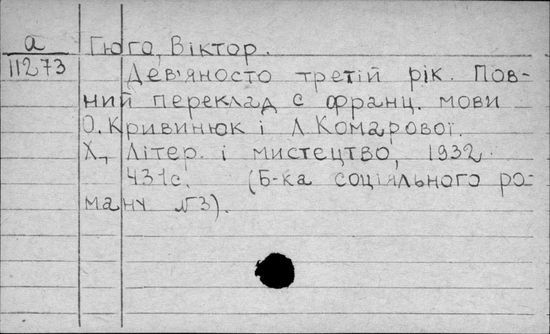 а
11273
Гюго, Віктор.
Дев'яносто третій рік. Пов-
ний переклад с франц. мови
О. Кривинюк і Л. Комарової.
Х., Літер. і мистецтво, 1932.
431с. (Б-ка соціяльного ро-
ману №3).